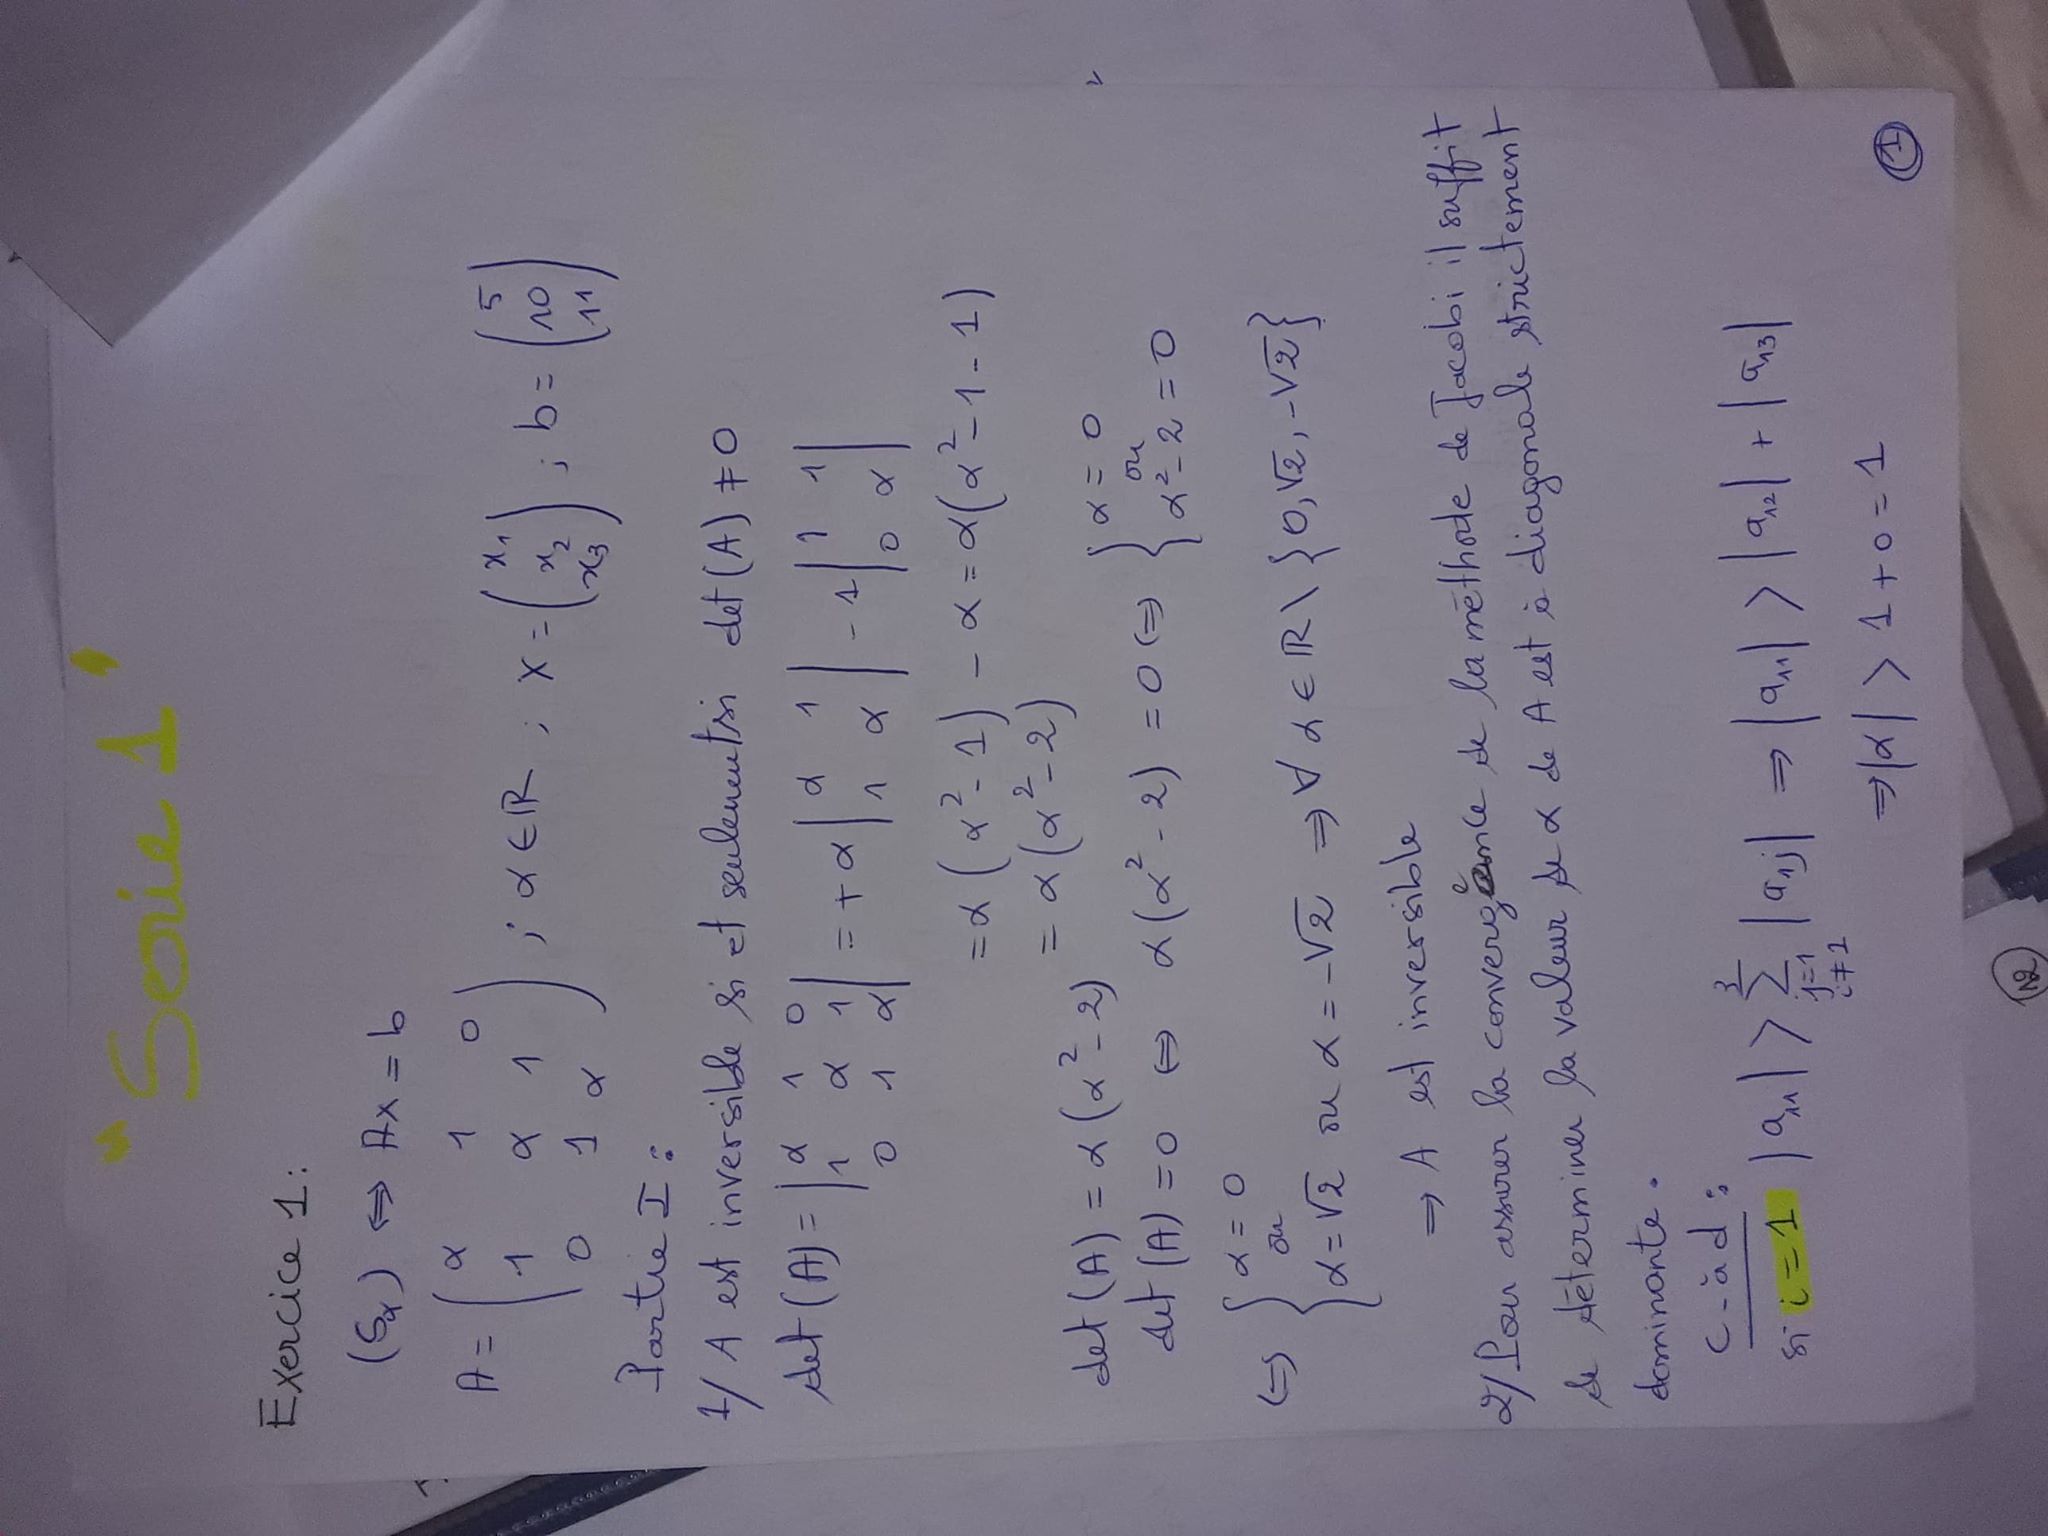 "Serie 1"
Exercice 1:
(Sα) ⇔ Ax = b
A = ( α 1 0 ; 1 α 1 ; 0 1 α ) ; α ∈ ℝ ; x = ( x₁ ; x₂ ; x₃ ) ; b = ( 5 ; 10 ; 11 )
Partie I :
1/ A est inversible si et seulement si det(A) ≠ 0
det(A) = | α 1 0 ; 1 α 1 ; 0 1 α | = + α | α 1 ; 1 α | - 1 | 1 1 ; 0 α |
= α ( α² - 1 ) - α = α ( α² - 1 - 1 )
= α ( α² - 2 )
det (A) = α ( α² - 2 )
det (A) = 0 ⇔ α ( α² - 2 ) = 0 ⇔ { α = 0 ou α² - 2 = 0
⇔ { α = 0 ou α = √2 ou α = -√2 ⇒ ∀ α ∈ ℝ \ { 0, √2, -√2 }
⇒ A est inversible
2/ Pour assurer la convergence de la méthode de Jacobi il suffit
de déterminer la valeur de α de A est à diagonale strictement
dominante.
c-à d :
si i = 1 |a₁₁| > ∑ j=1 i≠1 3 |a₁j| ⇒ |a₁₁| > |a₁₂| + |a₁₃|
⇒ |α| > 1 + 0 = 1
1
12